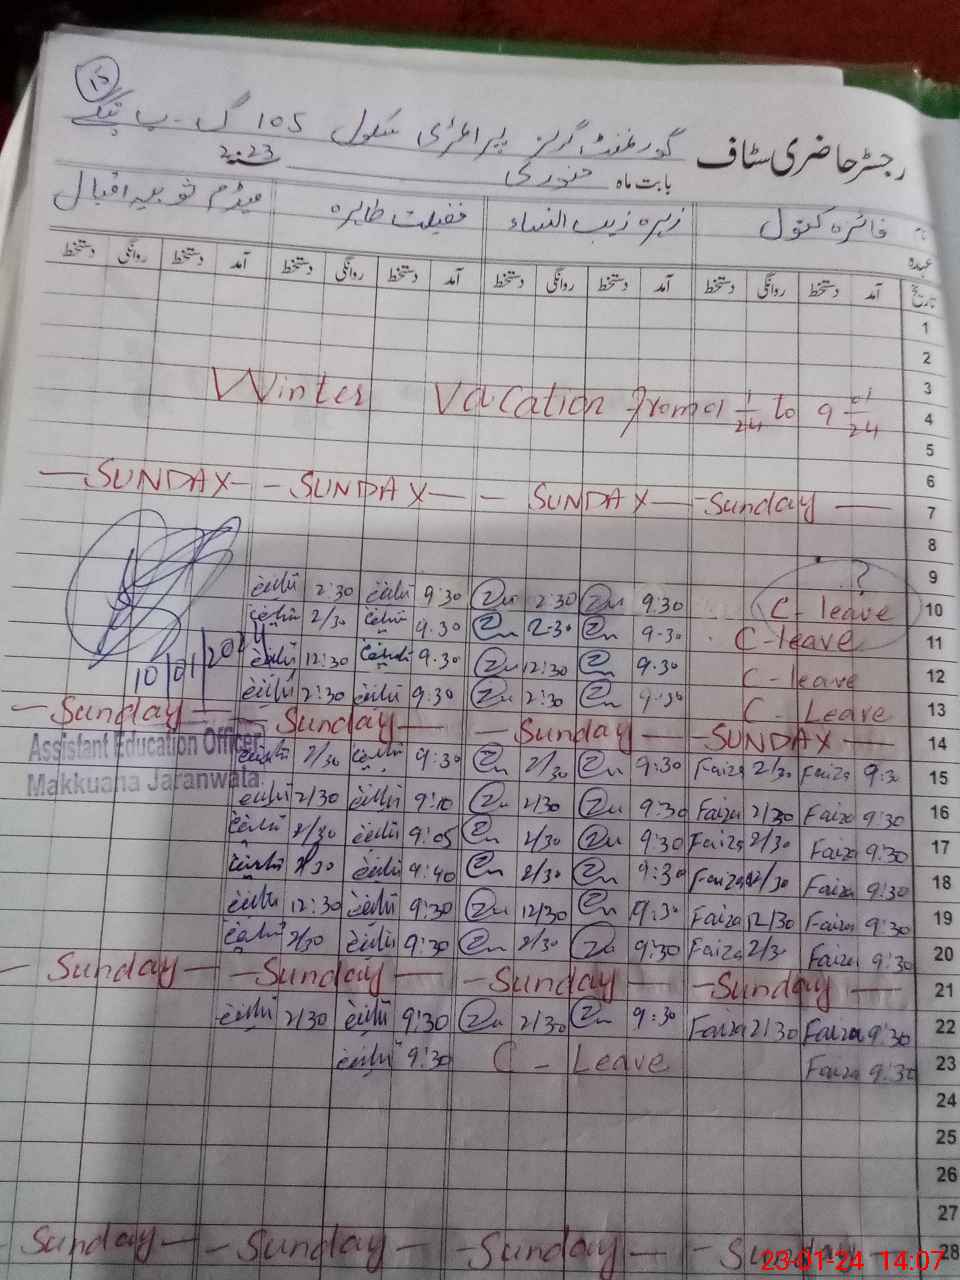 15
رجسٹر حاضری سٹاف گورنمنٹ گرلز پرائمری سکول 105 گ ب
بابت ماہ جنوری 2023
نام فائزہ کنول زہرہ زیب النساء فضیلت طاہرہ میڈم ثوبیہ اقبال
عہدہ
تاریخ آمد دستخط روانگی دستخط آمد دستخط روانگی دستخط آمد دستخط روانگی دستخط آمد دستخط روانگی دستخط
1
2
3
Winter Vacation from 01 1/24 to 9 01/24
4
5
6
— SUNDAY — — SUNDAY — — SUNDAY — — Sunday — 7
8
9
?
2:30 9:30 2:30 9:30 C - leave 10
2/30 9.30 2-30 9-30 C - leave 11
12:30 9.30 12:30 9.30 C - leave 12
10/01/2024
2:30 9:30 2:30 9:30 C - Leave 13
— Sunday — — Sunday — — Sunday — — SUNDAY — 14
Assistant Education Officer
Makkuana Jaranwala
2/30 9:30 2/30 9:30 Faiza 2/30 Faiza 9:30 15
2/30 9:10 2/30 9:30 Faiza 2/30 Faiza 9:30 16
2/30 9:05 2/30 9:30 Faiza 2/30 Faiza 9:30 17
2/30 9:40 2/30 9:30 Faiza 2/30 Faiza 9:30 18
12:30 9:30 12/30 9:30 Faiza 12/30 Faiza 9:30 19
2/30 9:30 2/30 9:30 Faiza 2/30 Faiza 9:30 20
— Sunday — — Sunday — — Sunday — — Sunday — 21
2/30 9:30 2/30 9:30 Faiza 2/30 Faiza 9:30 22
9:30 C - Leave Faiza 9:30 23
24
25
26
27
Sunday — — Sunday — — Sunday — — Sunday — 28
23-01-24 14:07